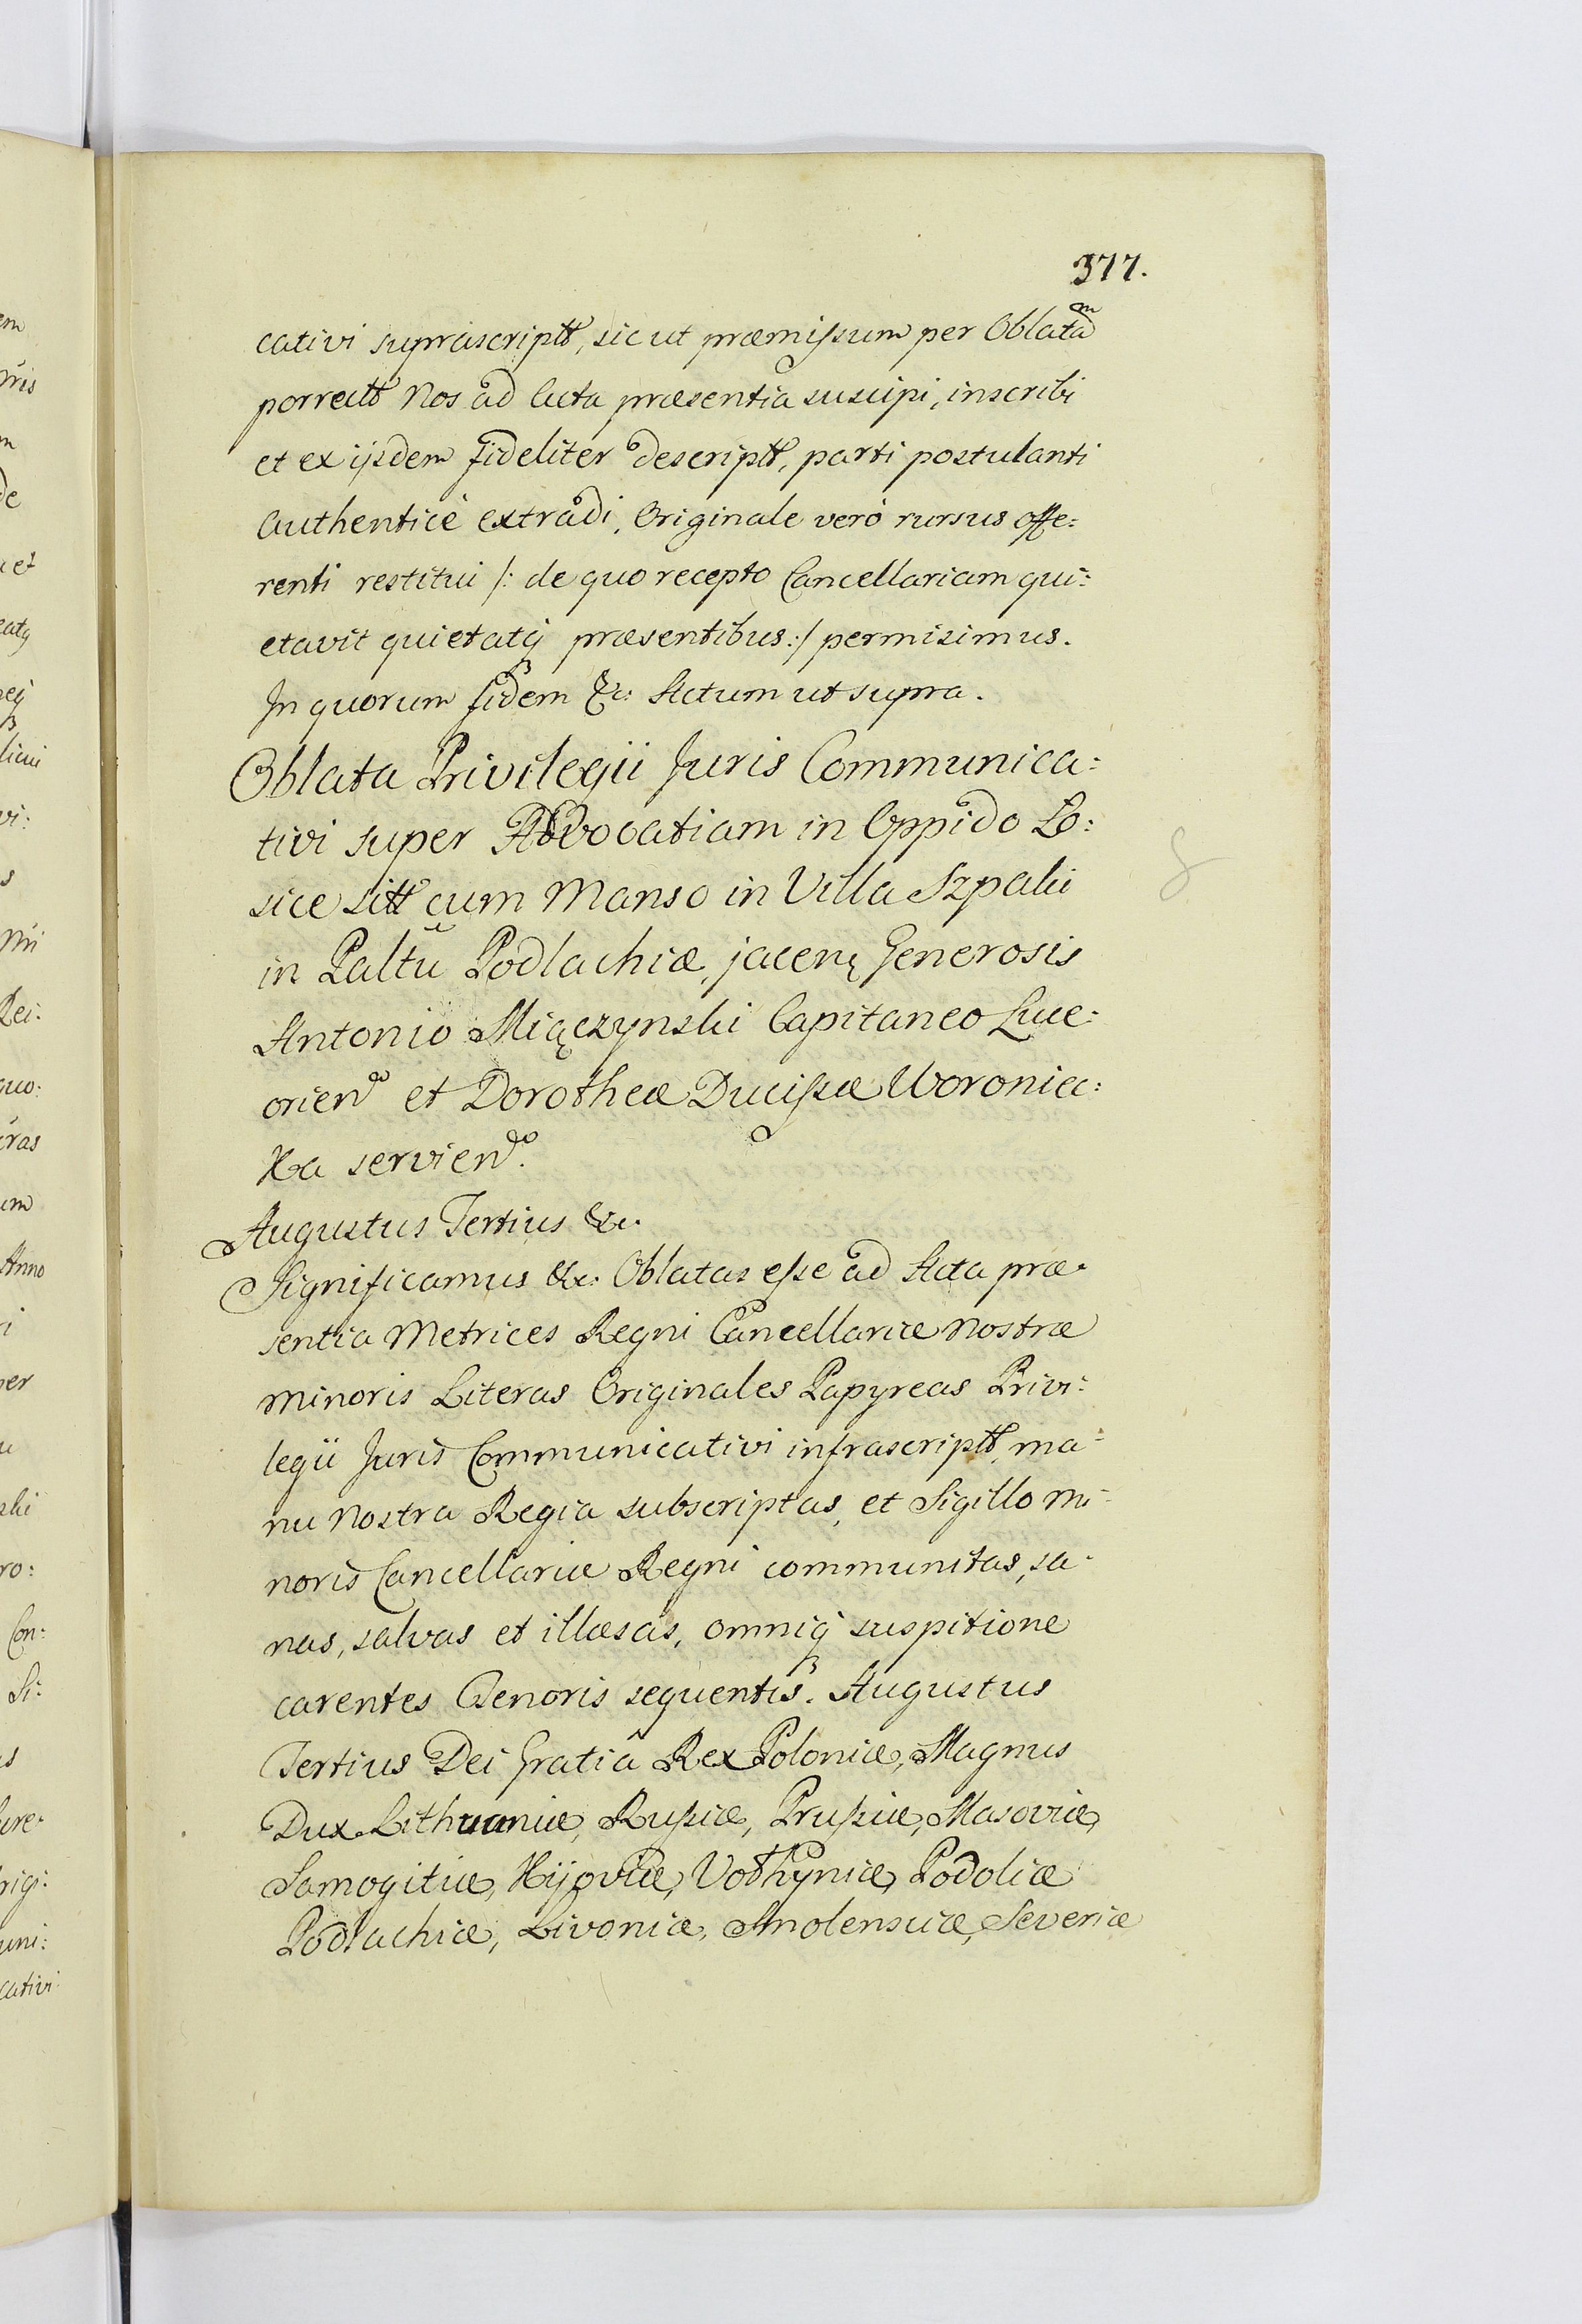 377.
cativi supráscriptt, sic ut præmissum per Oblatam
porrectt Nos ad Acta præsentia suscipi, inscribi
et ex ijsdem fideliter descriptt, parti postulanti
Authenticè extradi, Originale verò rursus offe:
renti restitui /: de quo recepto Cancellariam qui:
etavit quietatq præsentibus :/ permisimus.
In quorum fidem &c: Actum ut supra.
Oblata Privilegii Juris Communica:
tivi super Advocatiam in Oppido Lo:
sice sitt cum Manso in Villa Szpaki
in Paltũ Podlachiæ, jacenę Generosis
Antonio Miączynski Capitaneo Luce:
orien et Dorotheæ Ducissæ Woroniec:
Ka servien.
Augustus Tertius &c.
Significamus &c: Oblatas esse ad Acta præ
sentia Metrices Regni Cancellariæ Nostræ
minoris Literas Originales Papyreas Privi:
legii Juris Communicativi infrascriptt, ma
nu Nostra Regia subscriptas, et Sigillo mi
noris Cancellariæ Regni communitas, sa
nas, salvas et illæsas, omniq suspitione
carentes Tenoris sequentis. Augustus
Tertius Dei Gratiâ Rex Poloniæ, Magnus
Dux Lithuaniæ, Russiæ, Prussiæ, Masoviæ,
Samogitiæ, Kijoviæ, Volhyniæ, Podoliæ
Podlachiæ, Livoniæ, Smolensciæ, Severiæ